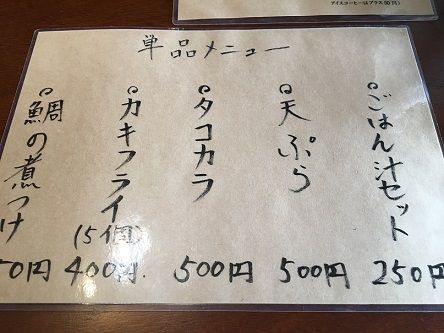 アイスコーヒーはプラス
単品メニュー
ごはん汁セット
250円
天ぷら
500円
タコカラ
500円
カキフライ
(5個)
400円
鯛の煮つけ
0円